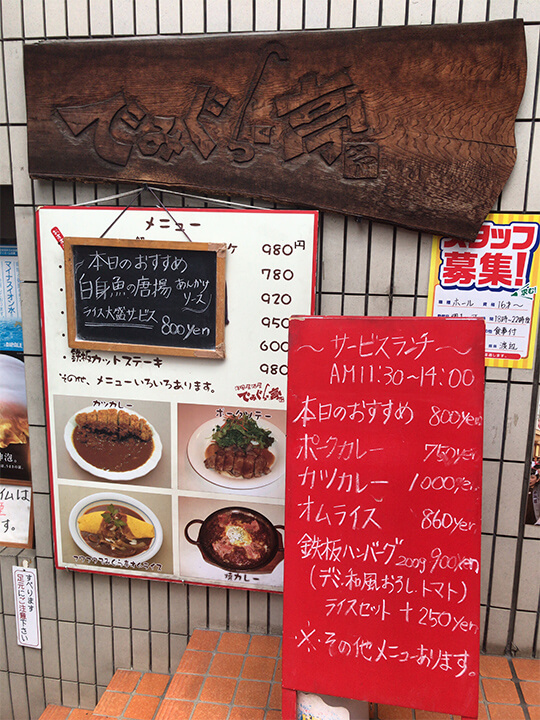 でみぐら亭
メニュー
980円
780
920
950
600
980
鉄板カットステーキ
その他、メニューいろいろあります。
でみぐら亭
本日のおすすめ
白身魚の唐揚 あんかけソース
ライス大盛サービス
800yen
カツカレー
ポークソテー
焼カレー
スタッフ
募集!
ホール
18時~22時位
食事付
~サービスランチ~
AM11:30~14:00
本日のおすすめ 800yen
ポークカレー 750yen
カツカレー 1000yen
オムライス 860yen
鉄板ハンバーグ200g 900yen
(デミ.和風おろし.トマト)
ライスセット + 250yen
※その他メニューあります。
マイナスイオン水
すべります
足元にご注意下さい